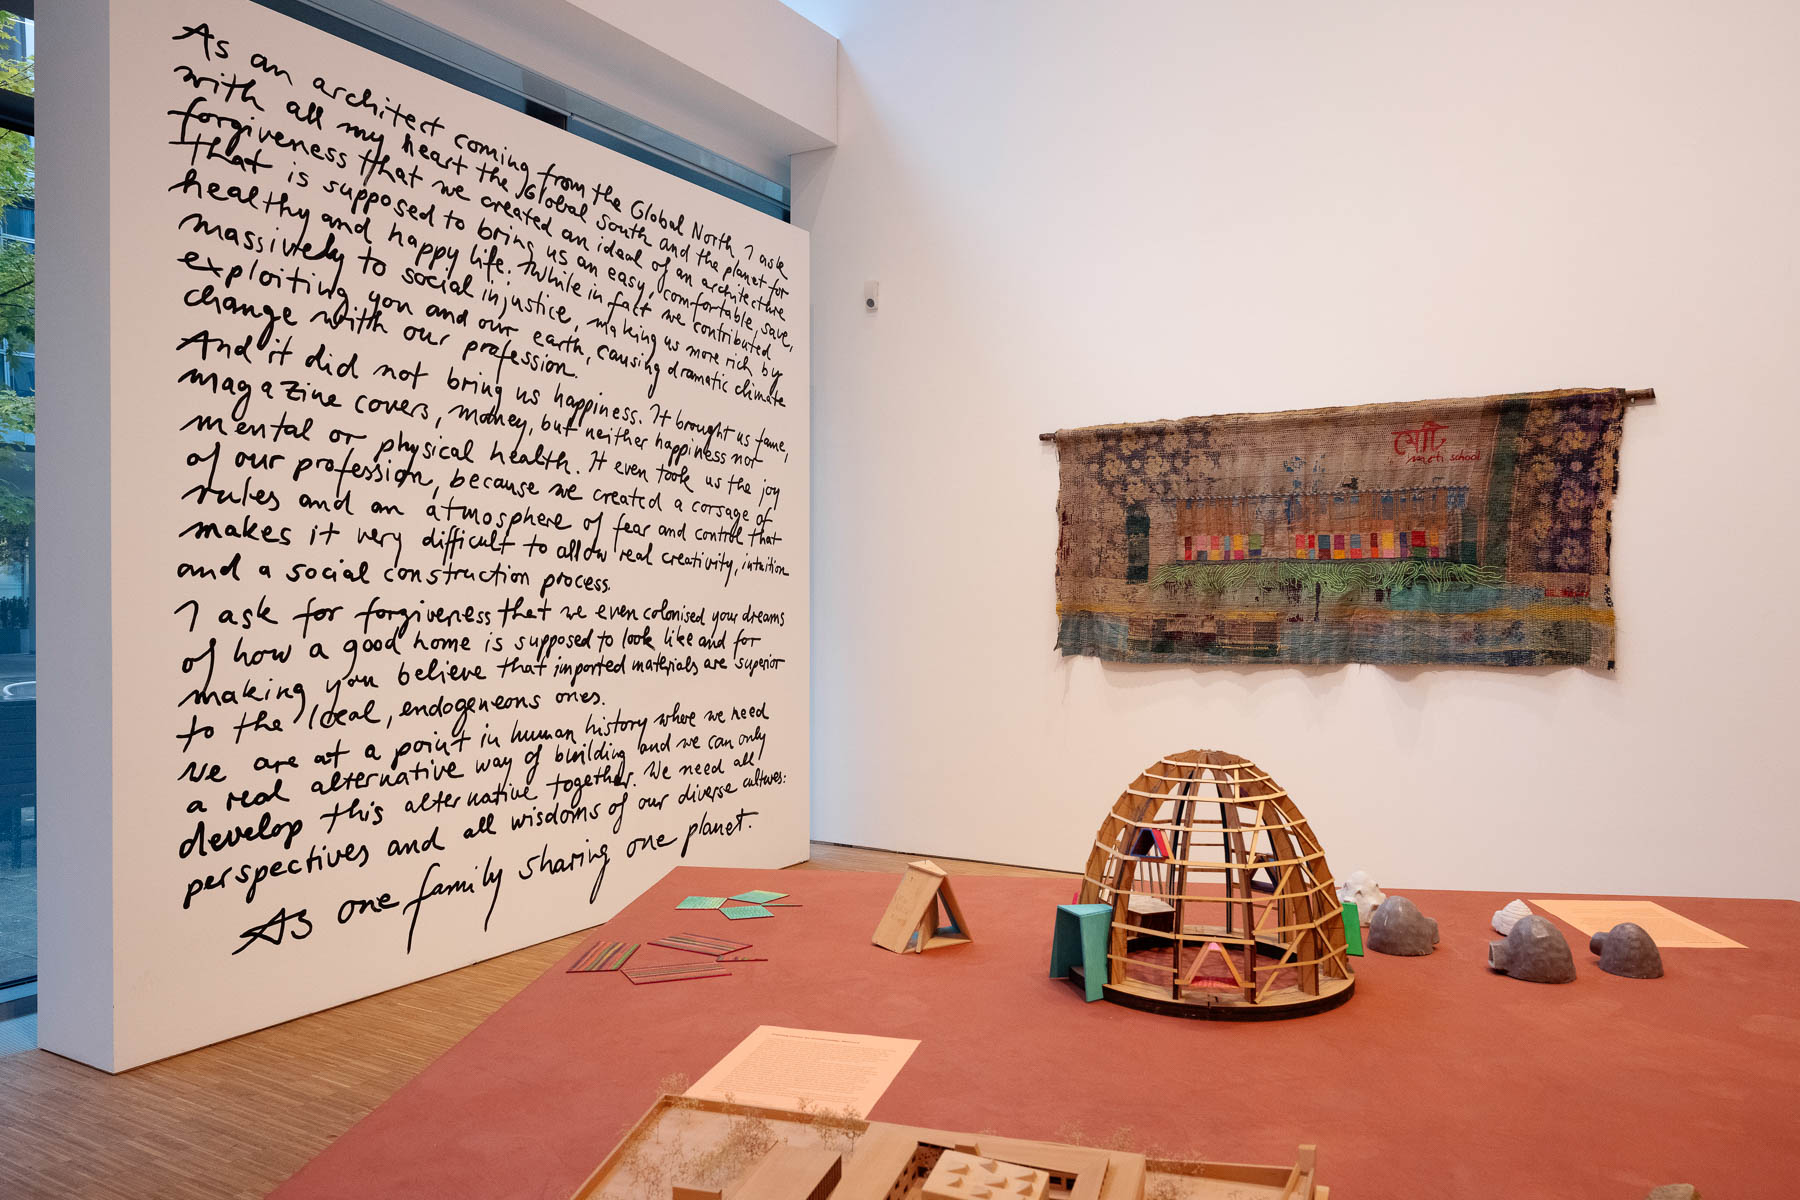 As an architect coming from the Global North I ask
with all my heart the Global South and the planet for
forgiveness that we created an ideal of an architecture
that is supposed to bring us an easy, comfortable, save,
healthy and happy life. While in fact we contributed
massively to social injustice, making us more rich by
exploiting you and our earth, causing dramatic climate
change with our profession.
And it did not bring us happiness. It brought us fame,
magazine covers, money, but neither happiness not
mental or physical health. It even took us the joy
of our profession, because we created a corsage of
rules and an atmosphere of fear and control that
makes it very difficult to allow real creativity, intuition
and a social construction process.
I ask for forgiveness that we even colonised your dreams
of how a good home is supposed to look like and for
making you believe that imported materials are superior
to the local, endogeneous ones.
We are at a point in human history where we need
a real alternative way of building and we can only
develop this alternative together. We need all
perspectives and all wisdoms of our diverse cultures:
As one family sharing one planet.
meti school